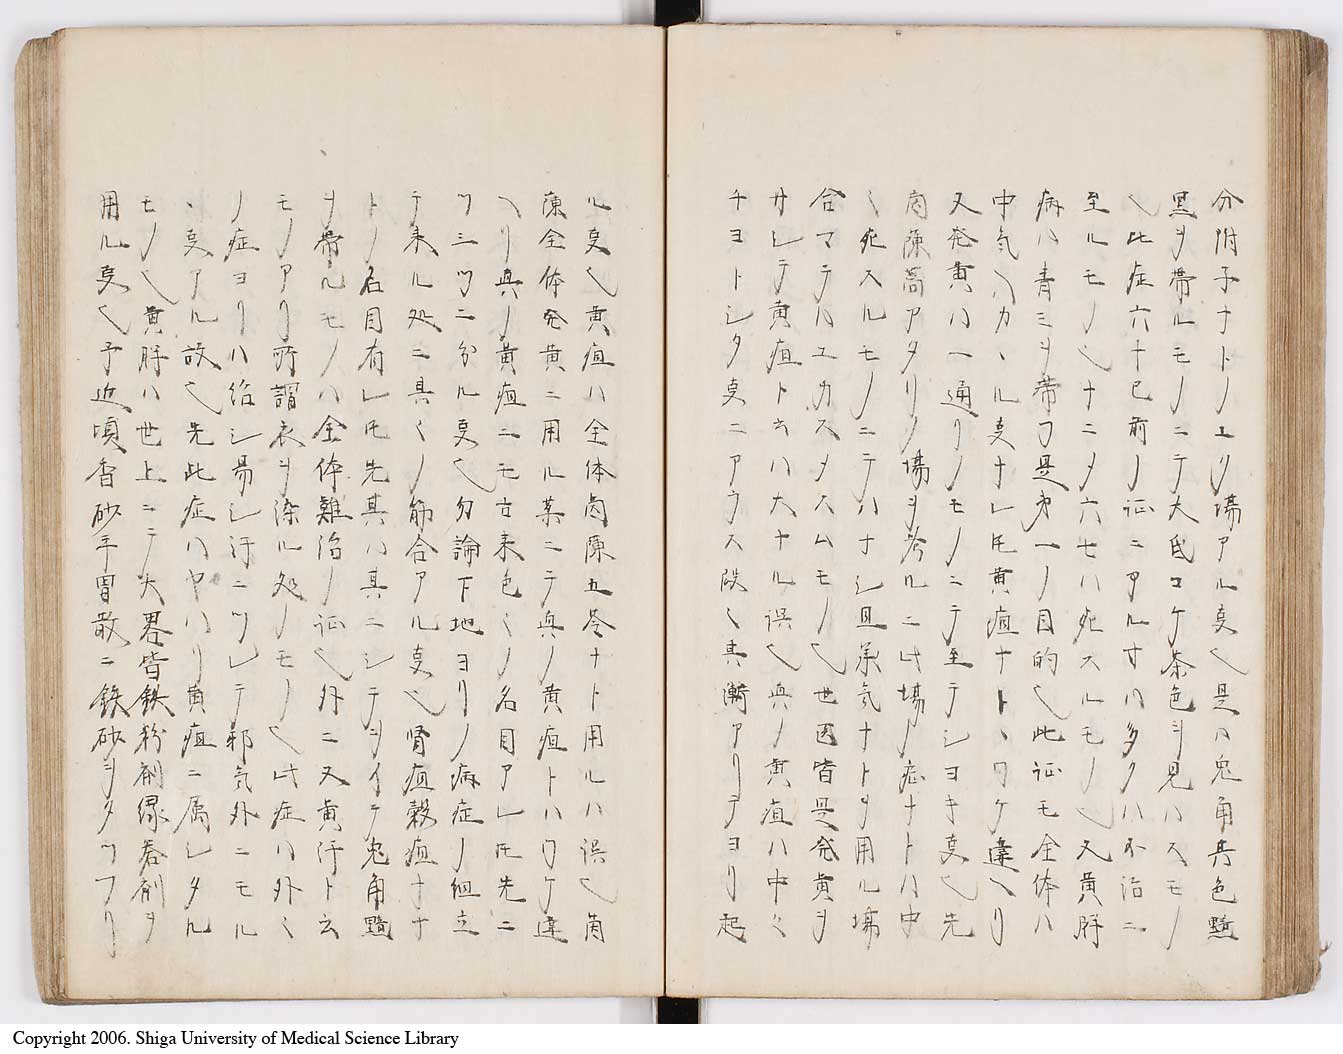 分附子ナトノユク場アル叓也是ハ兎角其色黯
黒ヲ帯ルモノニテ大氐コケ茶色ヲ見ハスモノ
也此症六十已前ノ証ニアルヿハ多クハ不治ニ
至ルモノ也十ニメ六七ハ死スルモノ也又黄胖
病ハ青ミヲ帯フ是第一ノ目的也此証モ全体ハ
中気ヘカヽル叓ナレ𪜈黄疸ナトヽワケ違ヘリ
又発黄ハ一通リノモノニテ至テシヨキ叓也先
茵蔯蒿アタリノ場ヲ考ルニ此場ノ症ナトハ中
〱死スルモノニテハナシ且承気ナトヲ用ル場
合マテハユカスメスムモノ也世医皆是発黄ヲ
サシテ黄疸ト云ハ大ナル誤也真ノ黄疸ハ中〱
チヨトシタ叓ニアラス段〱其漸アリテヨリ起
ル叓也黄疸ハ全体茵蔯五苓ナト用ルハ誤也茵
蔯全体発黄ニ用ル薬ニテ真ノ黄疸トハワケ違
ヘリ真ノ黄疸ニモ古来色〱ノ名目アレ𪜈先ニ
ツ三ツニ分ル叓也勿論下地ヨリノ病症ノ組立
テ来ル処ニ具〱ノ筋合アル叓也腎疸穀疸ナ
トノ名目有レ𪜈先其ハ其ニシテヲイテ兎角黯
ヲ帯ルモノハ全体難治ノ証也外ニ又黄汗ト云
モノアリ所謂衣ヲ染ル処ノモノ也此症ハ外〱
ノ症ヨリハ治シ易シ汗ニツレテ邪気外ニモル
ヽ叓アル故也先此症ハヤハリ黄疸ニ属シタル
モノ也黄胖ハ世上ニテ大畧皆鉄粉剤緑礬剤ヲ
用ル叓也予近頃香砂平胃散ニ鉄砂ヲタツフリ